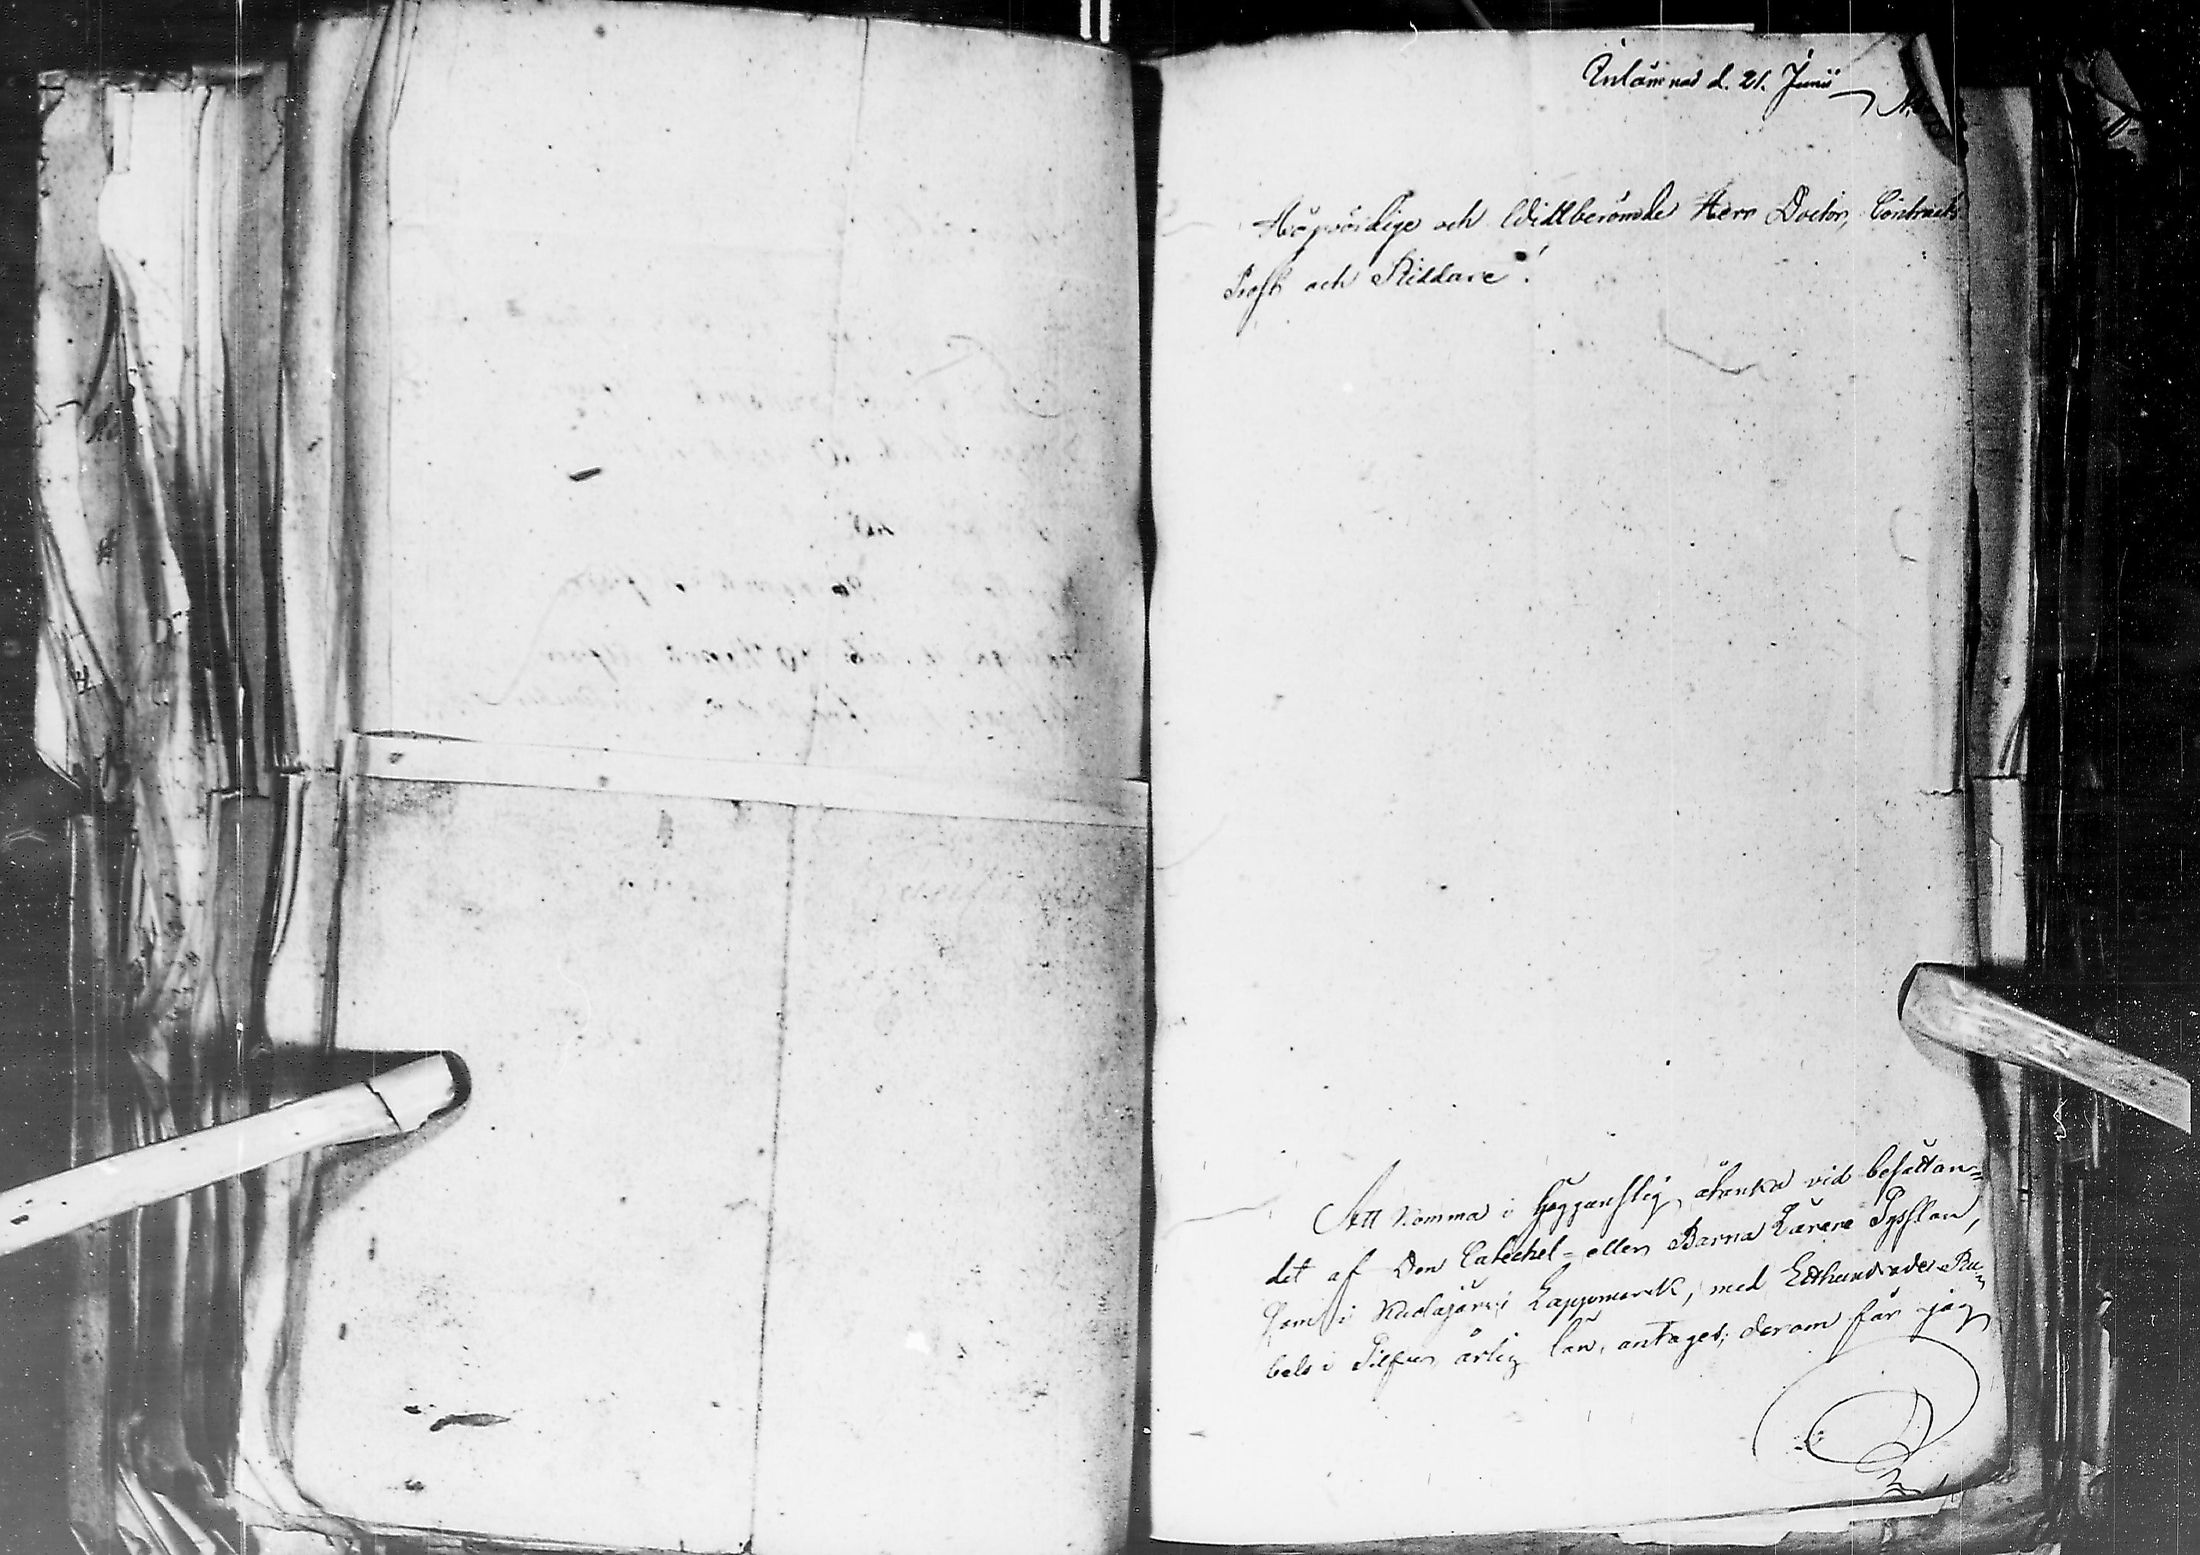 Inlämnad d. 21. Junii
Högvördige och Widtberömde Herr Doctor, Contracts
Prost och Riddare!
Att komma i hoggunstig åtanka vid besättan-
det af Den Catechet- eller Barna Lärare Sysslan,
som i Kuolajärvi Lappmark, med Etthundrade Ru-
bels i Silfver årlig lön, antages; derom får jag